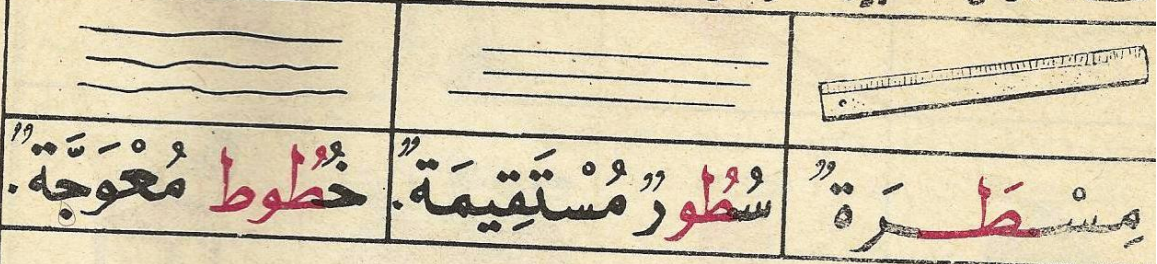 مِسْطَرَةٌ
سُطُورٌ مُسْتَقِيمَةٌ.
خُطُوط مُعْوَجَّةٌ.